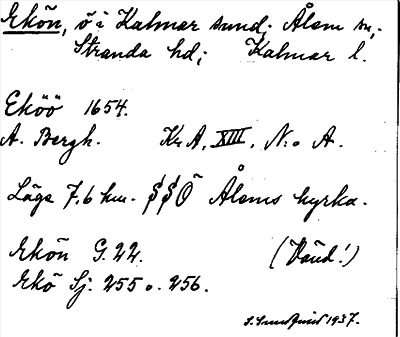 Ekön, ö i Kalmar sund; Ålem sn,
Stranda hd; Kalmar l.
Eköö 1654.
A. Bergh. Kr. A, XIII, N:o A.
Läge 7,6 km. SSO Ålems kyrka.
Ekön G. 22. (Vänd!)
Ekö Sj. 255 o. 256.
1937.